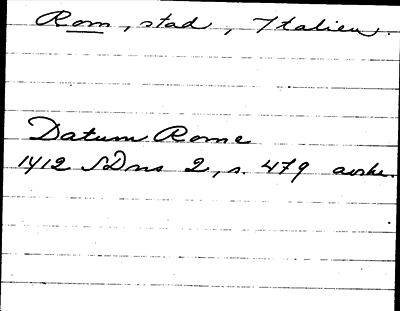 Rom, stad, Italien.
Datum Rome
1412 SDns 2, s. 479 avskr.